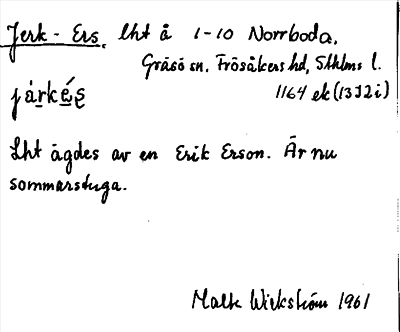 Jerk-Ers. lht å 1-10 Norrboda,
Gräsö sn. Frösåkers hd, Sthlms l.
járkés̨ 1164 ek (13J2i)
Lht ägdes av en Erik Erson. Är nu
sommarstuga.
Malte Wirkström 1961